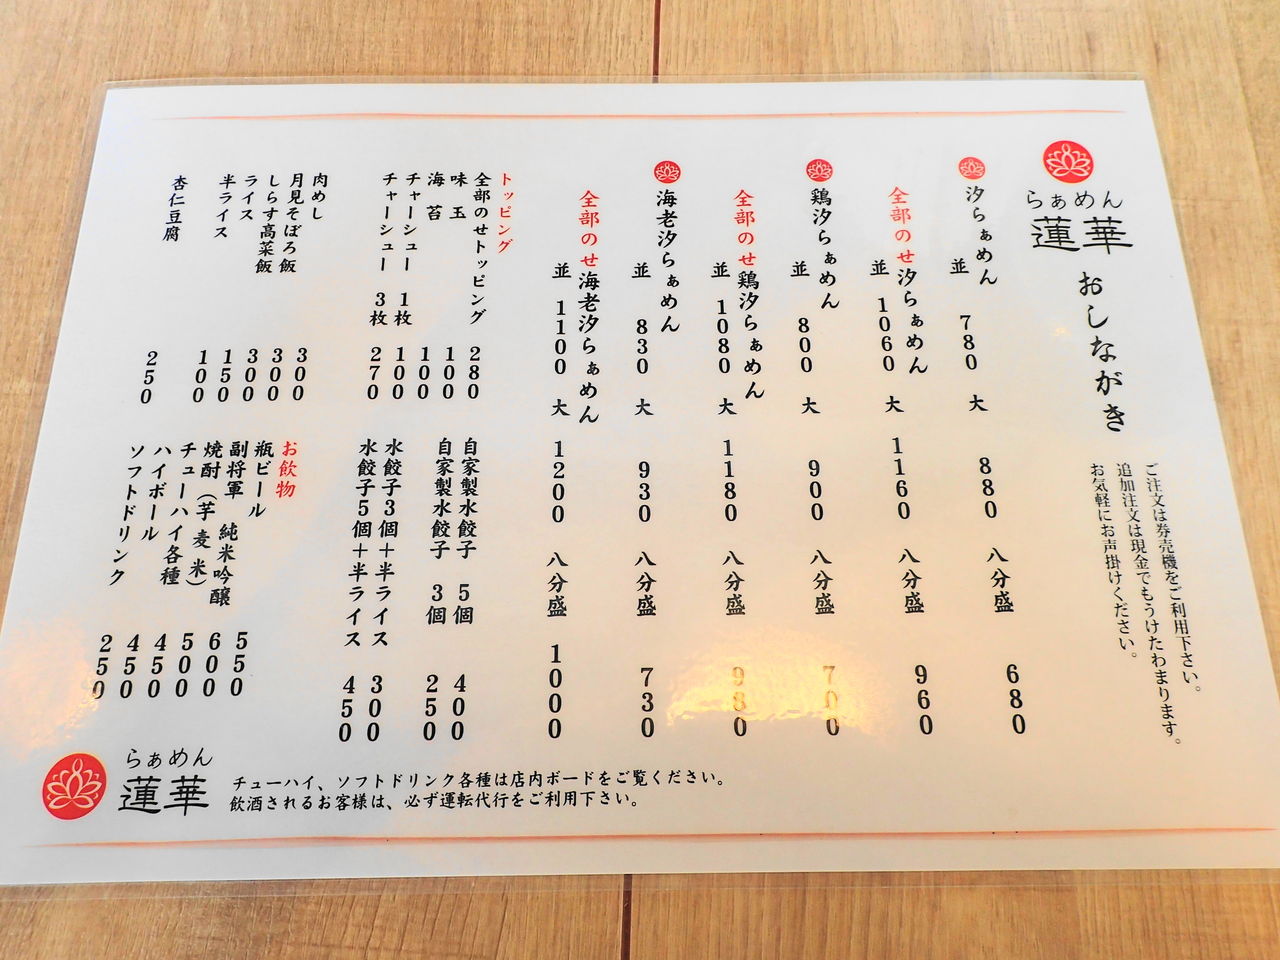 らぁめん
蓮華
おしながき
ご注文は券売機をご利用下さい。
追加注文は現金でもうけたまわります。
お気軽にお声掛けください。
汐らぁめん
並 780 大 880 八分盛 680
全部のせ汐らぁめん
並 1060 大 1160 八分盛 960
鶏汐らぁめん
並 800 大 900 八分盛 700
全部のせ鶏汐らぁめん
並 1080 大 1180 八分盛 980
海老汐らぁめん
並 830 大 930 八分盛 730
全部のせ海老汐らぁめん
並 1100 大 1200 八分盛 1000
トッピング
全部のせトッピング 280
味玉 100
海苔 100
チャーシュー 1枚 100
チャーシュー 3枚 270
自家製水餃子 5個 400
自家製水餃子 3個 250
水餃子3個+半ライス 300
水餃子5個+半ライス 450
肉めし 300
月見そぼろ飯 300
しらす高菜飯 300
ライス 150
半ライス 100
杏仁豆腐 250
お飲物
瓶ビール 550
副将軍 純米吟醸 600
焼酎(芋 麦 米) 500
チューハイ各種 450
ハイボール 450
ソフトドリンク 250
らぁめん
蓮華
チューハイ、ソフトドリンク各種は店内ボードをご覧ください。
飲酒されるお客様は、必ず運転代行をご利用下さい。